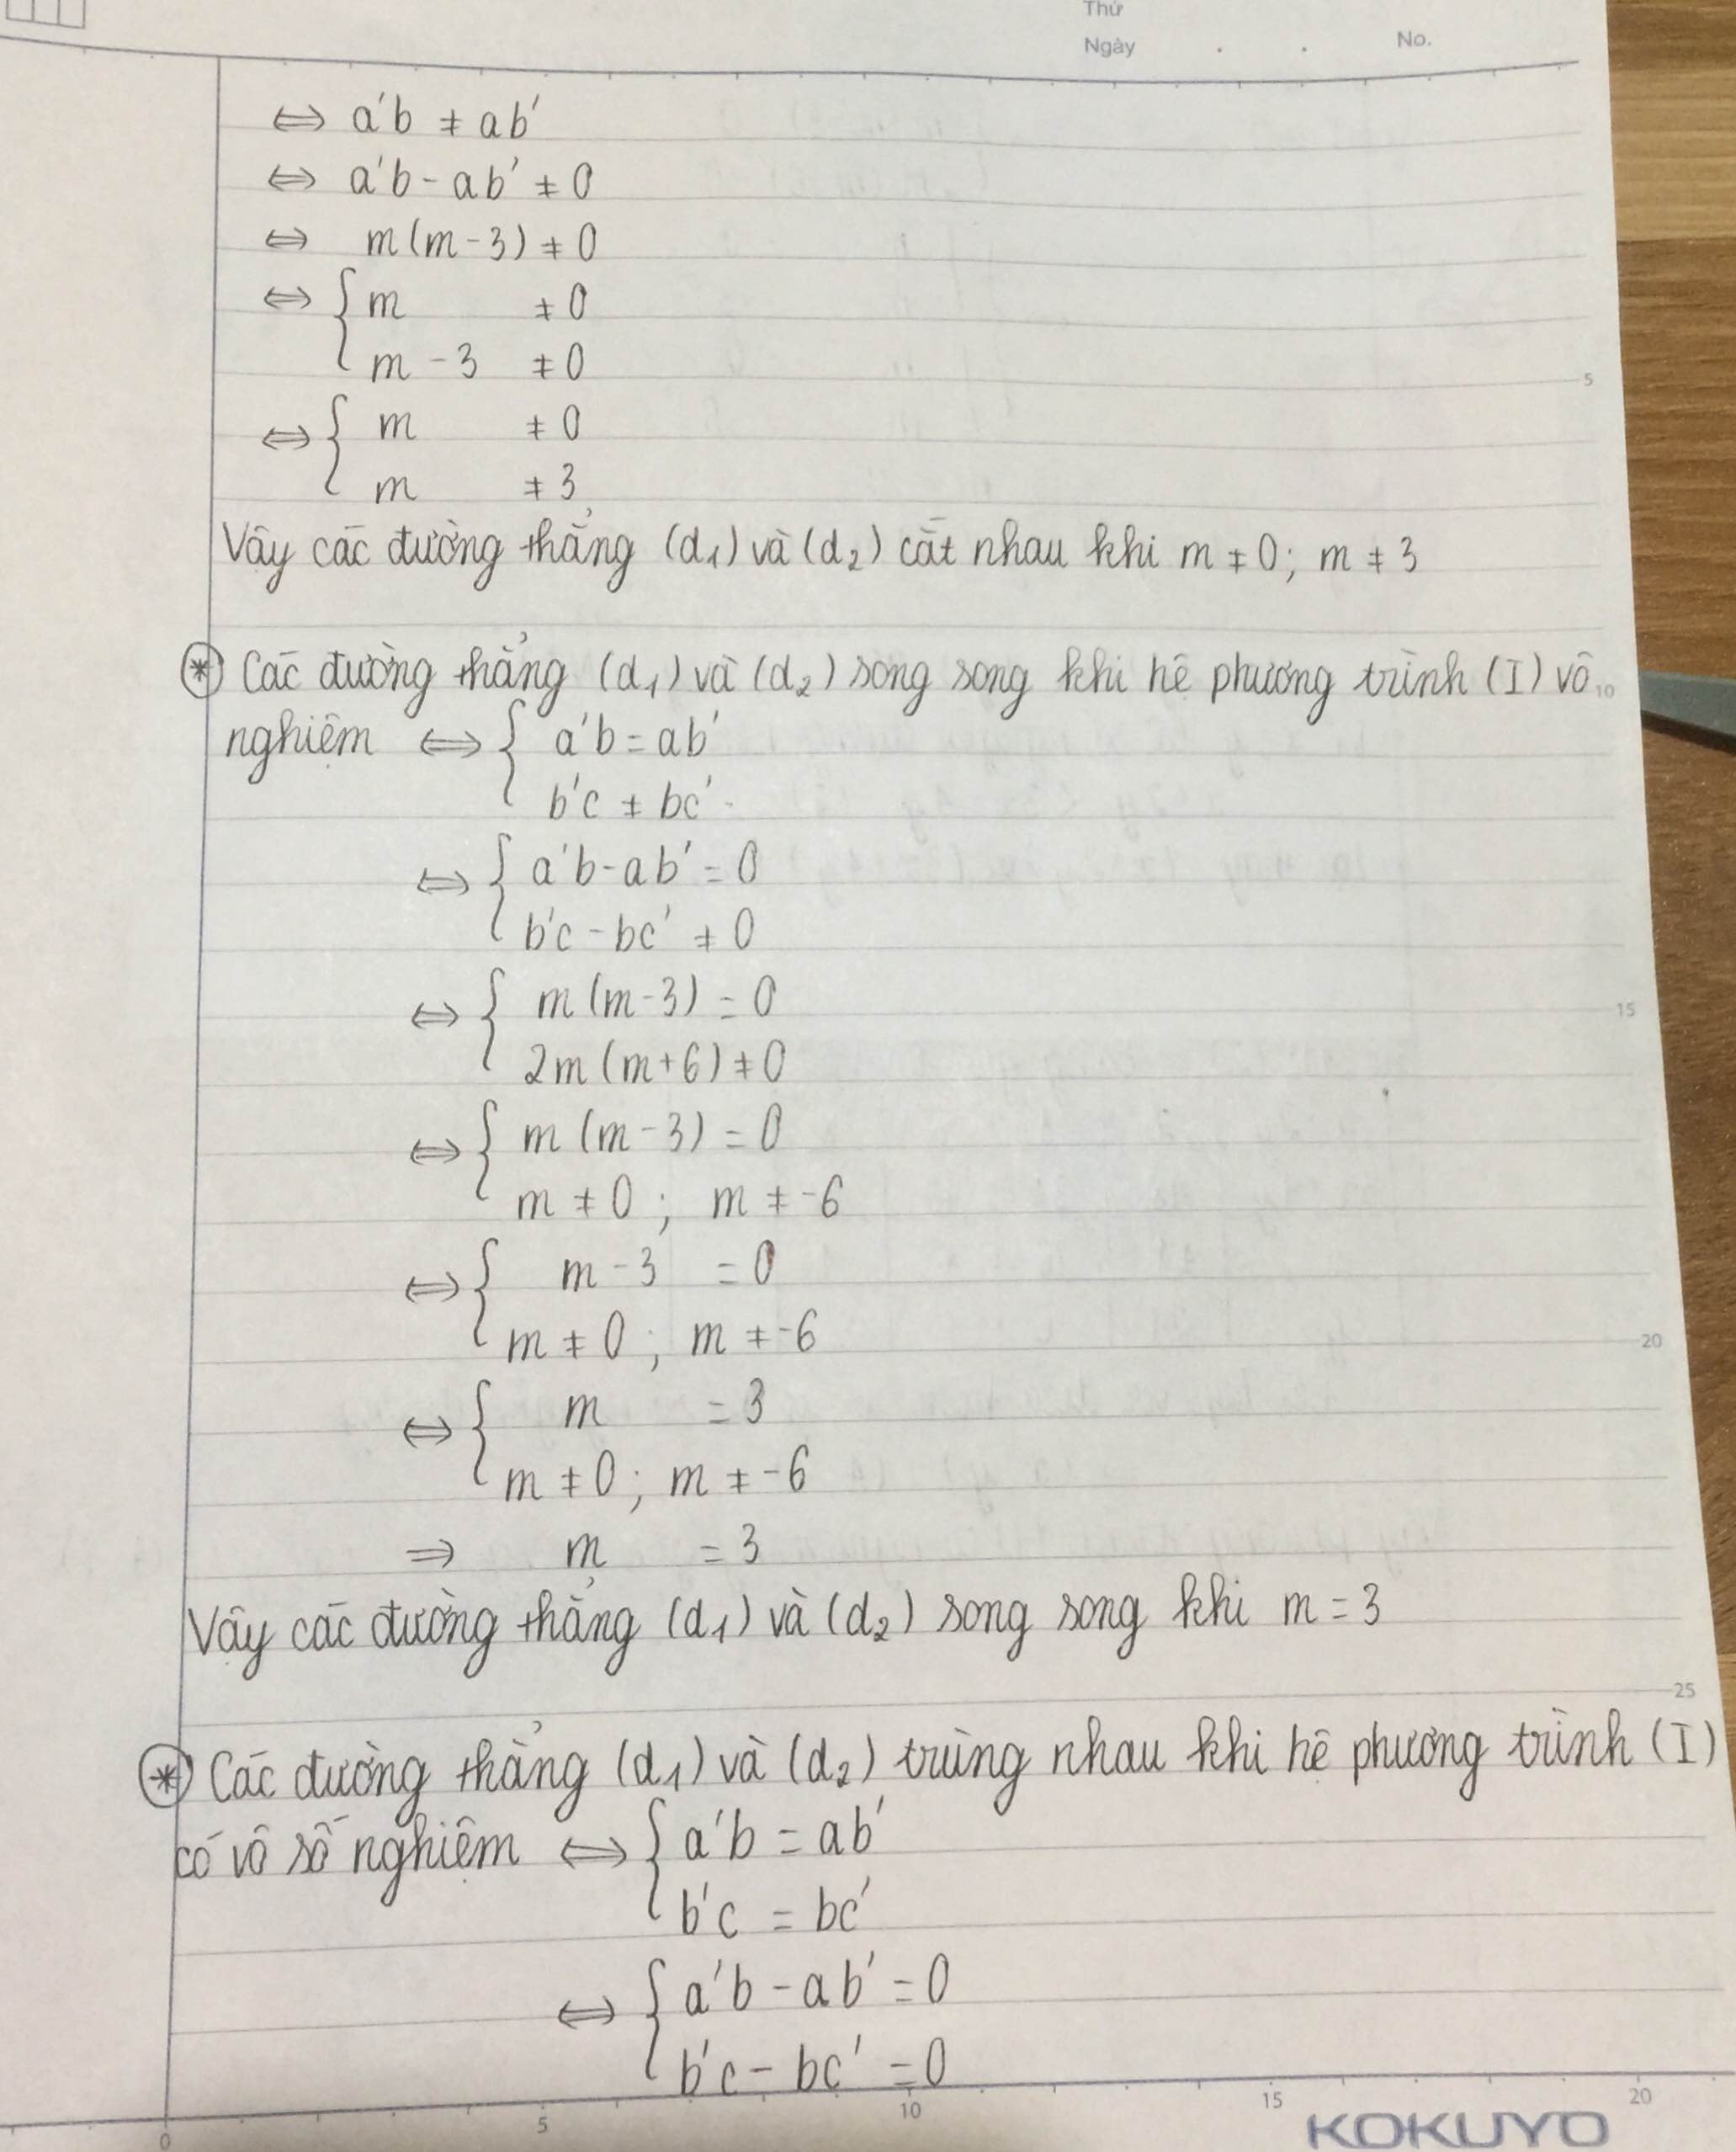 Thứ
Ngày . . No.
⇔ a'b ≠ ab'
⇔ a'b - ab' ≠ 0
⇔ m(m-3) ≠ 0
⇔ { m ≠ 0
m - 3 ≠ 0
⇔ { m ≠ 0
m ≠ 3
Vậy các đường thẳng (d₁) và (d₂) cắt nhau khi m ≠ 0; m ≠ 3
(*) Các đường thẳng (d₁) và (d₂) song song khi hệ phương trình (I) vô
nghiệm ⇔ { a'b = ab'
b'c ≠ bc'
⇔ { a'b - ab' = 0
b'c - bc' ≠ 0
⇔ { m (m-3) = 0
2m (m+6) ≠ 0
⇔ { m (m-3) = 0
m ≠ 0 ; m ≠ -6
⇔ { m - 3 = 0
m ≠ 0 ; m ≠ -6
⇔ { m = 3
m ≠ 0 ; m ≠ -6
⇒ m = 3
Vậy các đường thẳng (d₁) và (d₂) song song khi m = 3
(*) Các đường thẳng (d₁) và (d₂) trùng nhau khi hệ phương trình (I)
có vô số nghiệm ⇔ { a'b = ab'
b'c = bc'
⇔ { a'b - ab' = 0
b'c - bc' = 0
5
10
15
20
25
0 5 10 15 20
KOKUYO